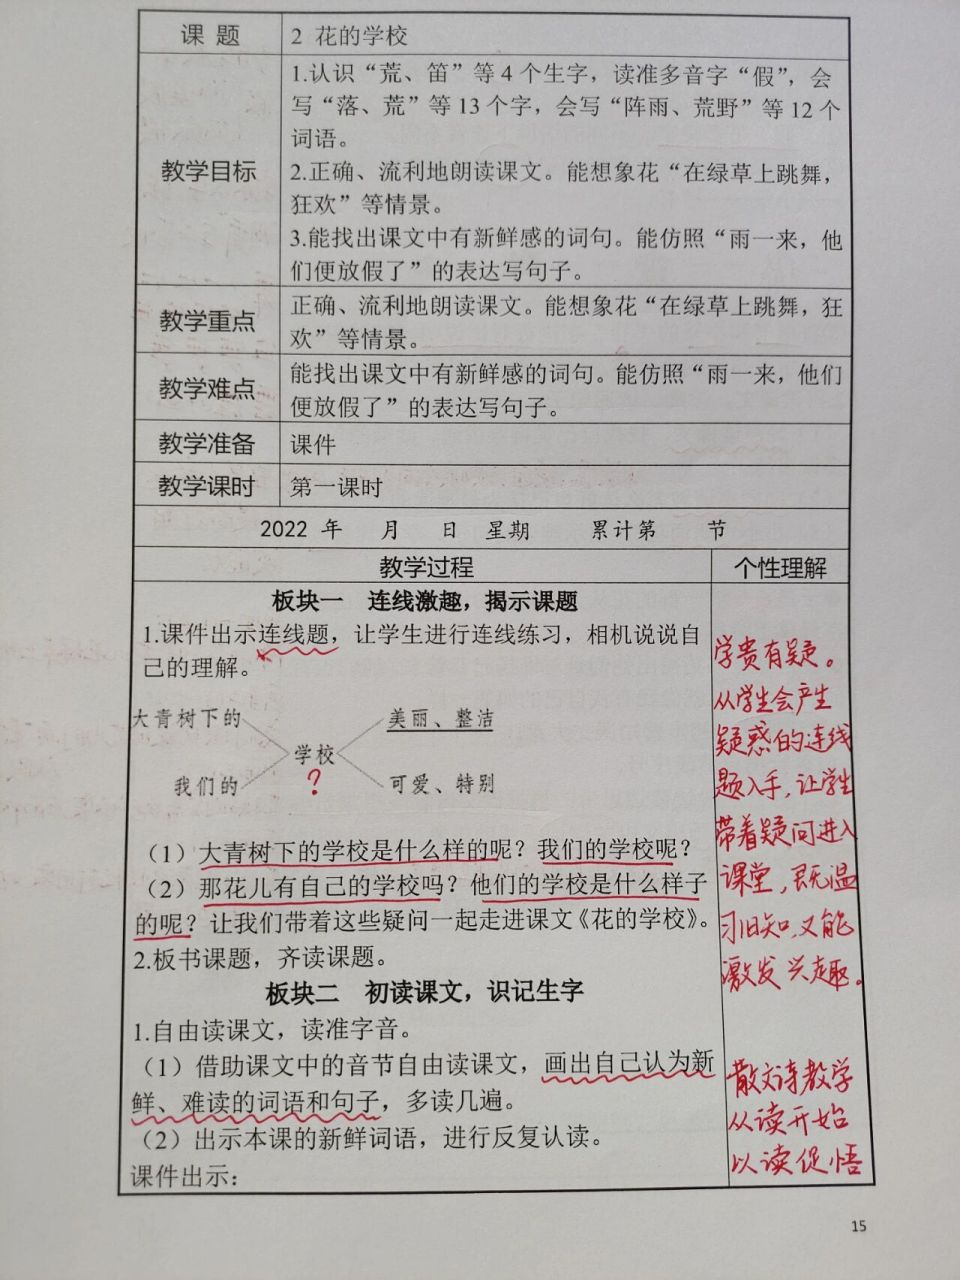 课 题
2 花的学校
教学目标
1.认识“荒、笛”等4个生字，读准多音字“假”，会
写“落、荒”等13个字，会写“阵雨、荒野”等12个
词语。
2.正确、流利地朗读课文。能想象花“在绿草上跳舞，
狂欢”等情景。
3.能找出课文中有新鲜感的词句。能仿照“雨一来，他
们便放假了”的表达写句子。
教学重点
正确、流利地朗读课文。能想象花“在绿草上跳舞，狂
欢”等情景。
教学难点
能找出课文中有新鲜感的词句。能仿照“雨一来，他们
便放假了”的表达写句子。
教学准备
课件
教学课时
第一课时
2022 年 月 日 星期 累计第 节
教学过程
个性理解
板块一 连线激趣，揭示课题
1.课件出示连线题，让学生进行连线练习，相机说说自
己的理解。
大青树下的
美丽、整洁
学校
?
我们的
可爱、特别
（1）大青树下的学校是什么样的呢？我们的学校呢？
（2）那花儿有自己的学校吗？他们的学校是什么样子
的呢？让我们带着这些疑问一起走进课文《花的学校》。
2.板书课题，齐读课题。
板块二 初读课文，识记生字
1.自由读课文，读准字音。
（1）借助课文中的音节自由读课文，画出自己认为新
鲜、难读的词语和句子，多读几遍。
（2）出示本课的新鲜词语，进行反复认读。
课件出示：
学贵有疑。
从学生会产生
疑惑的连线
题入手，让学生
带着疑问进入
课堂，既温
习旧知，又能
激发兴趣。
散文诗教学
从读开始
以读促悟
15